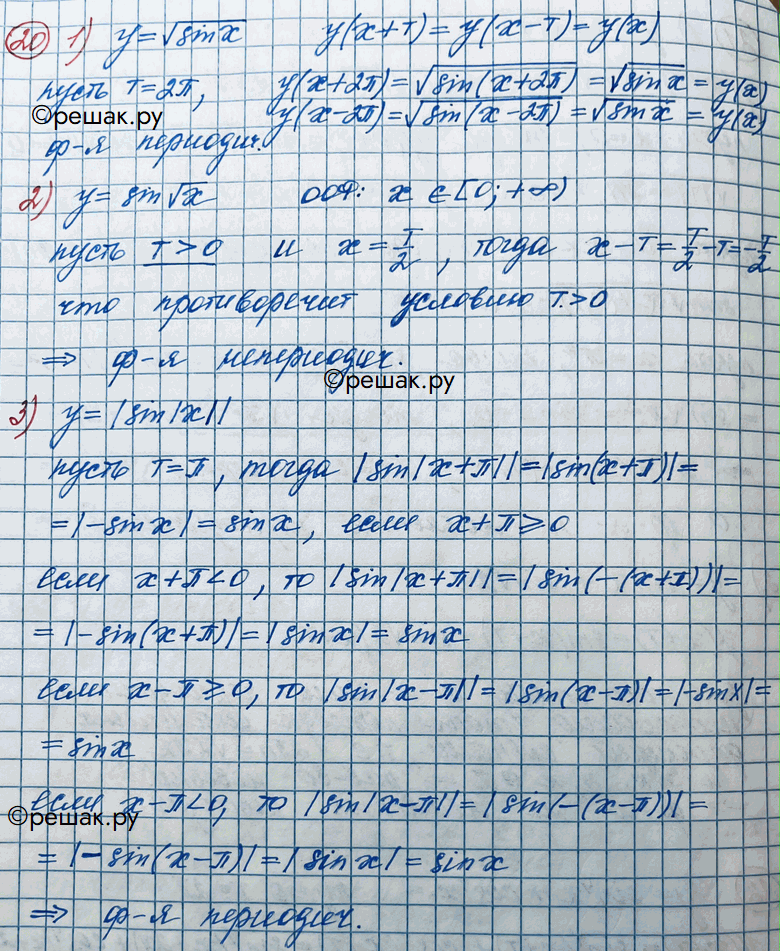 20 1) y=√sinx y(x+T)=y(x-T)=y(x)
пусть T=2π, y(x+2π)=√sin(x+2π) =√sinx = y(x)
©решак.ру y(x-2π)=√sin(x-2π) =√sinx = y(x)
ф-я периодич.
2) y= sin√x ООФ: x ∈ [0; +∞)
пусть T>0 и x=T/2, тогда x-T=T/2-T=-T/2
что противоречит условию T>0
⇒ ф-я непериодич.
©решак.ру
3) y=|sin|x||
пусть T=π, тогда |sin|x+π||=|sin(x+π)|=
=|-sinx|=sinx, если x+π≥0
если x+π<0, то |sin|x+π||=|sin(-(x+π))|=
=|-sin(x+π)|=|sinx|=sinx
если x-π≥0, то |sin|x-π||=|sin(x-π)|=|-sinx|=
=sinx
если x-π<0, то |sin|x-π||=|sin(-(x-π))|=
©решак.ру
=|-sin(x-π)|=|sinx|=sinx
⇒ ф-я периодич.